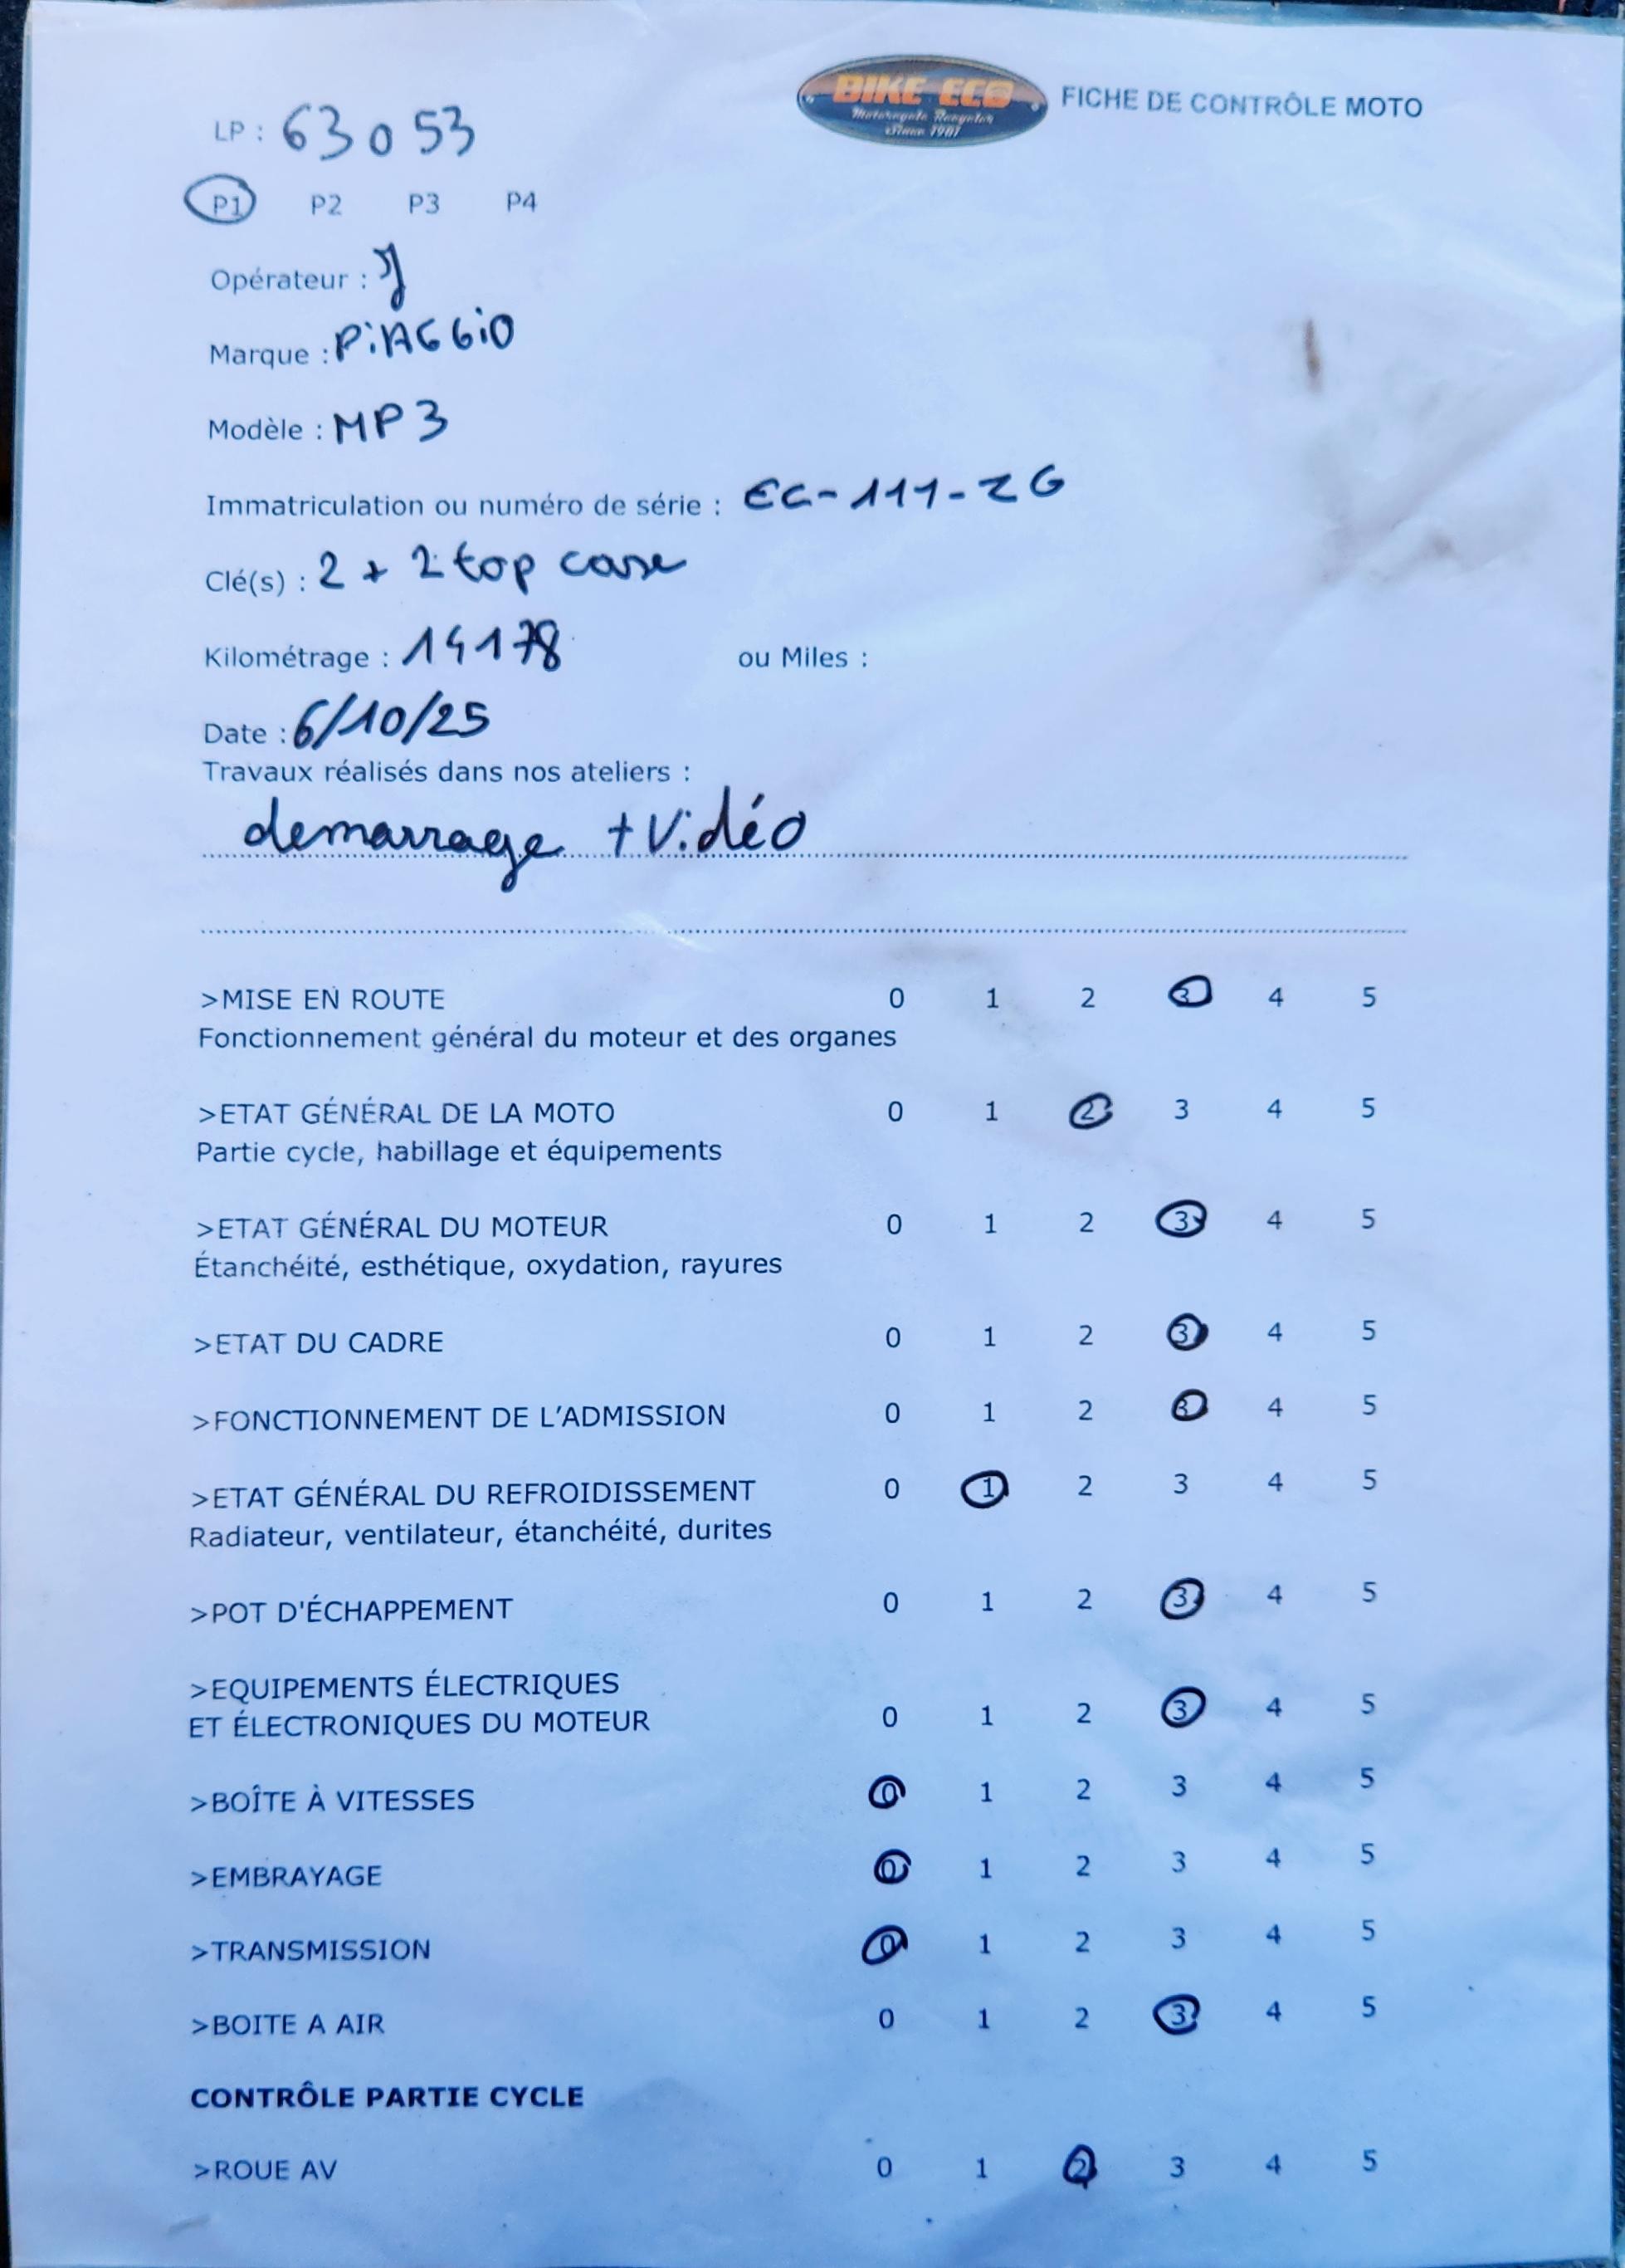 BIKE ECO
Motorcycle Recycler
Since 1987
FICHE DE CONTRÔLE MOTO
LP : 63053
P1 P2 P3 P4
Opérateur : J
Marque : PiAGGiO
Modèle : MP3
Immatriculation ou numéro de série : EC-111-ZG
Clé(s) : 2 + 2 top case
Kilométrage : 14178 ou Miles :
Date : 6/10/25
Travaux réalisés dans nos ateliers :
demarrage + Vidéo
>MISE EN ROUTE 0 1 2 3 4 5
Fonctionnement général du moteur et des organes
>ETAT GÉNÉRAL DE LA MOTO 0 1 2 3 4 5
Partie cycle, habillage et équipements
>ETAT GÉNÉRAL DU MOTEUR 0 1 2 3 4 5
Étanchéité, esthétique, oxydation, rayures
>ETAT DU CADRE 0 1 2 3 4 5
>FONCTIONNEMENT DE L'ADMISSION 0 1 2 3 4 5
>ETAT GÉNÉRAL DU REFROIDISSEMENT 0 1 2 3 4 5
Radiateur, ventilateur, étanchéité, durites
>POT D'ÉCHAPPEMENT 0 1 2 3 4 5
>EQUIPEMENTS ÉLECTRIQUES
ET ÉLECTRONIQUES DU MOTEUR 0 1 2 3 4 5
>BOÎTE À VITESSES 0 1 2 3 4 5
>EMBRAYAGE 0 1 2 3 4 5
>TRANSMISSION 0 1 2 3 4 5
>BOITE A AIR 0 1 2 3 4 5
CONTRÔLE PARTIE CYCLE
>ROUE AV 0 1 2 3 4 5